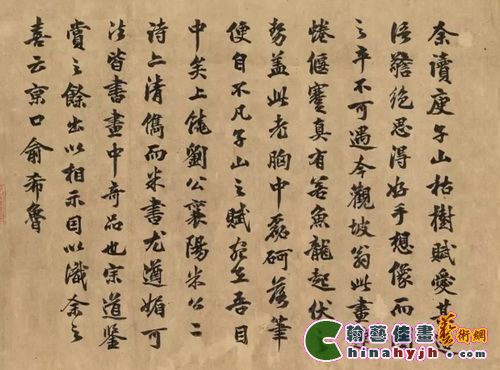 余讀庾子山枯樹賦愛其造
語警絶思得好手想像而圖
之卒不可遇今觀坡翁此畫
蜷偃蹇真有若魚龍起伏
勢蓋此老胸中磊砢落筆
便自不凡子山之賦宛在吾目
中矣上饒劉公襄陽米公二
詩亦清儁而米書尤遒媚可
法皆書畫中奇品也宗道鑒
賞之餘出以相示因以識余之
喜云京口俞希魯
翰藝佳畫藝術網
Chinahyjh.com